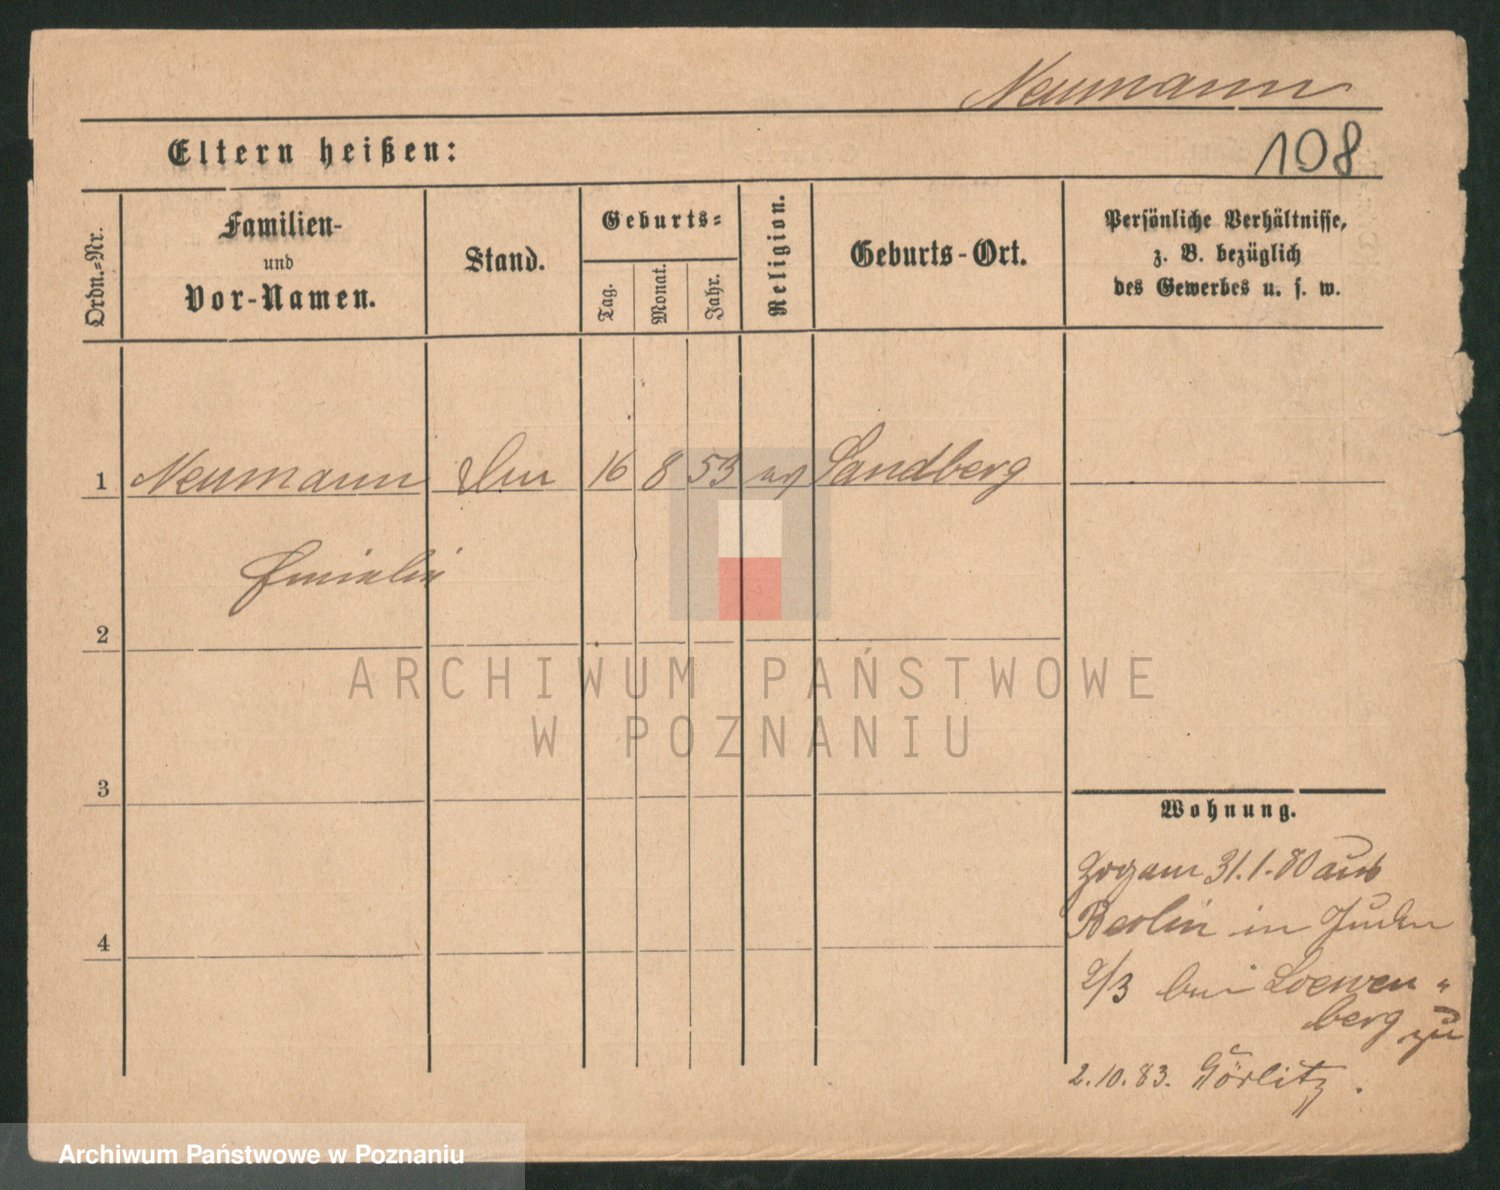 Neumann
108
Eltern heißen:
Ordn.-Nr.
Familien-
und
Vor-Namen.
Stand.
Geburts-
Tag.
Monat.
Jahr.
Religion.
Geburts-Ort.
Persönliche Verhältnisse,
z. B. bezüglich
des Gewerbes u. s. w.
1 Neumann 16 8 53 Sandberg
2
3
4
ARCHIWUM PAŃSTWOWE
W POZNANIU
Wohnung.
Zog am 31.1.80 aus
Berlin in Juden
2/3 bei Loewen-
berg zu
2.10.83. Görlitz.
Archiwum Państwowe w Poznaniu